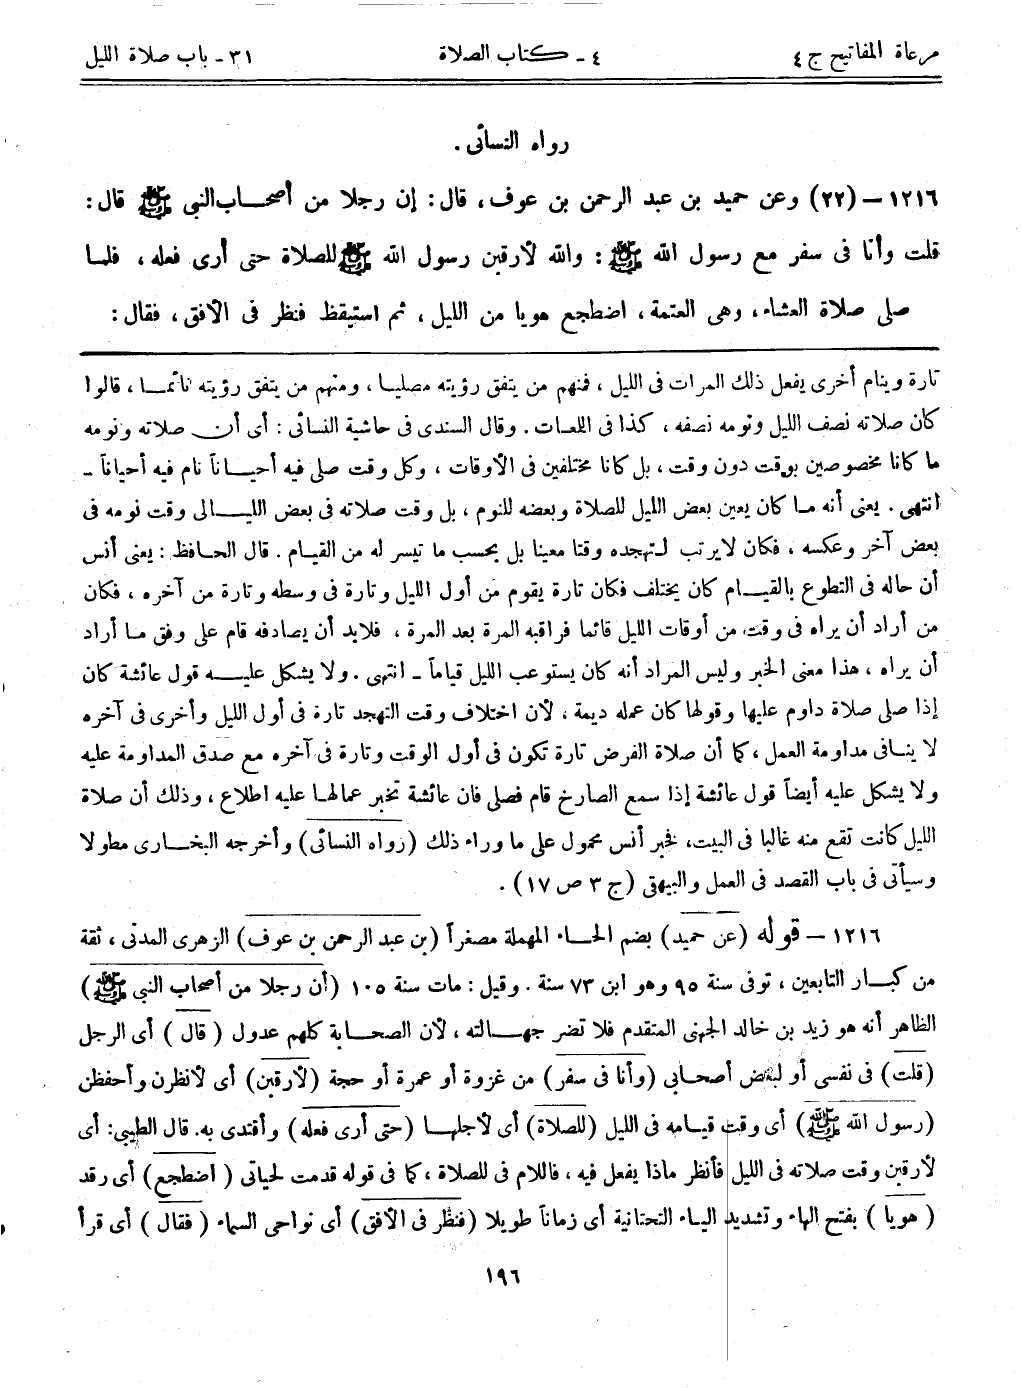 مرعاة المفاتيح ج ٤ ٤ - كتاب الصلاة ٣١ - باب صلاة الليل
رواه النسائى .
١٢١٦ – (٢٢) وعن حميد بن عبد الرحمن بن عوف، قال: إن رجلا من أصحاب النبى ﷺ قال:
قلت وأنا فى سفر مع رسول الله ﷺ : والله لأرقبن رسول الله ﷺ للصلاة حتى أرى فعله ، فلما
صلى صلاة العشاء، وهى العتمة، اضطجع هويا من الليل، ثم استيقظ فنظر فى الأفق، فقال:
تارة وينام أخرى يفعل ذلك المرات فى الليل ، فمنهم من يتفق رؤيته مصليا ، ومنهم من يتفق رؤيته نائما ، قالوا
كان صلاته نصف الليل ونومه نصفه ، كذا فى اللعات . وقال السندى فى حاشية النسائى : أى أن صلاته ونومه
ما كانا مخصوصين بوقت دون وقت ، بل كانا مختلفين فى الأوقات ، وكل وقت صلى فيه أحياناً نام فيه أحياناً –
انتهى . يعنى أنه ما كان يعين بعض الليل للصلاة وبعضه للنوم ، بل وقت صلاته فى بعض الليالى وقت نومه فى
بعض آخر وعكسه ، فكان لا يرتب لتهجده وقتا معينا بل بحسب ما تيسر له من القيام . قال الحافظ : يعنى أنس
أن حاله فى التطوع بالقيام كان يختلف فكان تارة يقوم من أول الليل وتارة فى وسطه وتارة من آخره ، فكان
من أراد أن يراه فى وقت من أوقات الليل قائما فراقبه المرة بعد المرة ، فلابد أن يصادفه قام على وفق ما أراد
أن يراه ، هذا معنى الخبر وليس المراد أنه كان يستوعب الليل قياماً – انتهى . ولا يشكل عليه قول عائشة كان
إذا صلى صلاة داوم عليها وقولها كان عمله ديمة ، لأن اختلاف وقت التهجد تارة فى أول الليل وأخرى فى آخره
لا ينافى مداومة العمل ، كما أن صلاة الفرض تارة تكون فى أول الوقت وتارة فى آخره مع صدق المداومة عليه
ولا يشكل عليه أيضاً قول عائشة إذا سمع الصارخ قام فصلى فان عائشة تخبر عمالها عليه اطلاع ، وذلك أن صلاة
الليل كانت تقع منه غالبا فى البيت، فخبر أنس محمول على ما وراء ذلك (رواه النسائى) وأخرجه البخارى مطولا
وسيأتى فى باب القصد فى العمل والبيهقى (ج ٣ ص ١٧) .
١٢١٦ – قوله (عن حميد) بضم الحاء المهملة مصغراً (بن عبد الرحمن بن عوف) الزهرى المدنى ، ثقة
من كبار التابعين ، توفى سنة ٩٥ وهو ابن ٧٣ سنة . وقيل : مات سنة ١٠٥ (أن رجلا من أصحاب النبى ﷺ)
الظاهر أنه هو زيد بن خالد الجهنى المتقدم فلا تضر جهالته ، لأن الصحابة كلهم عدول ( قال ) أى الرجل
(قلت) فى نفسى أو لبعض أصحابى (وأنا فى سفر) من غزوة أو عمرة أو حجة (لأرقبن) أى لأنظرن وأحفظن
(رسول الله ﷺ) أى وقت قيامه فى الليل (للصلاة) أى لأجلها (حتى أرى فعله) وأقتدى به. قال الطيبى: أى
لأرقبن وقت صلاته فى الليل فأنظر ماذا يفعل فيه ، فاللام فى للصلاة ، كما فى قوله قدمت لحياتى ( اضطجع) أى رقد
( هويا ) بفتح الهاء وتشديد الياء التحتانية أى زماناً طويلا (فنظر فى الأفق) أى نواحى السماء ( فقال ) أى قرأ
١٩٦